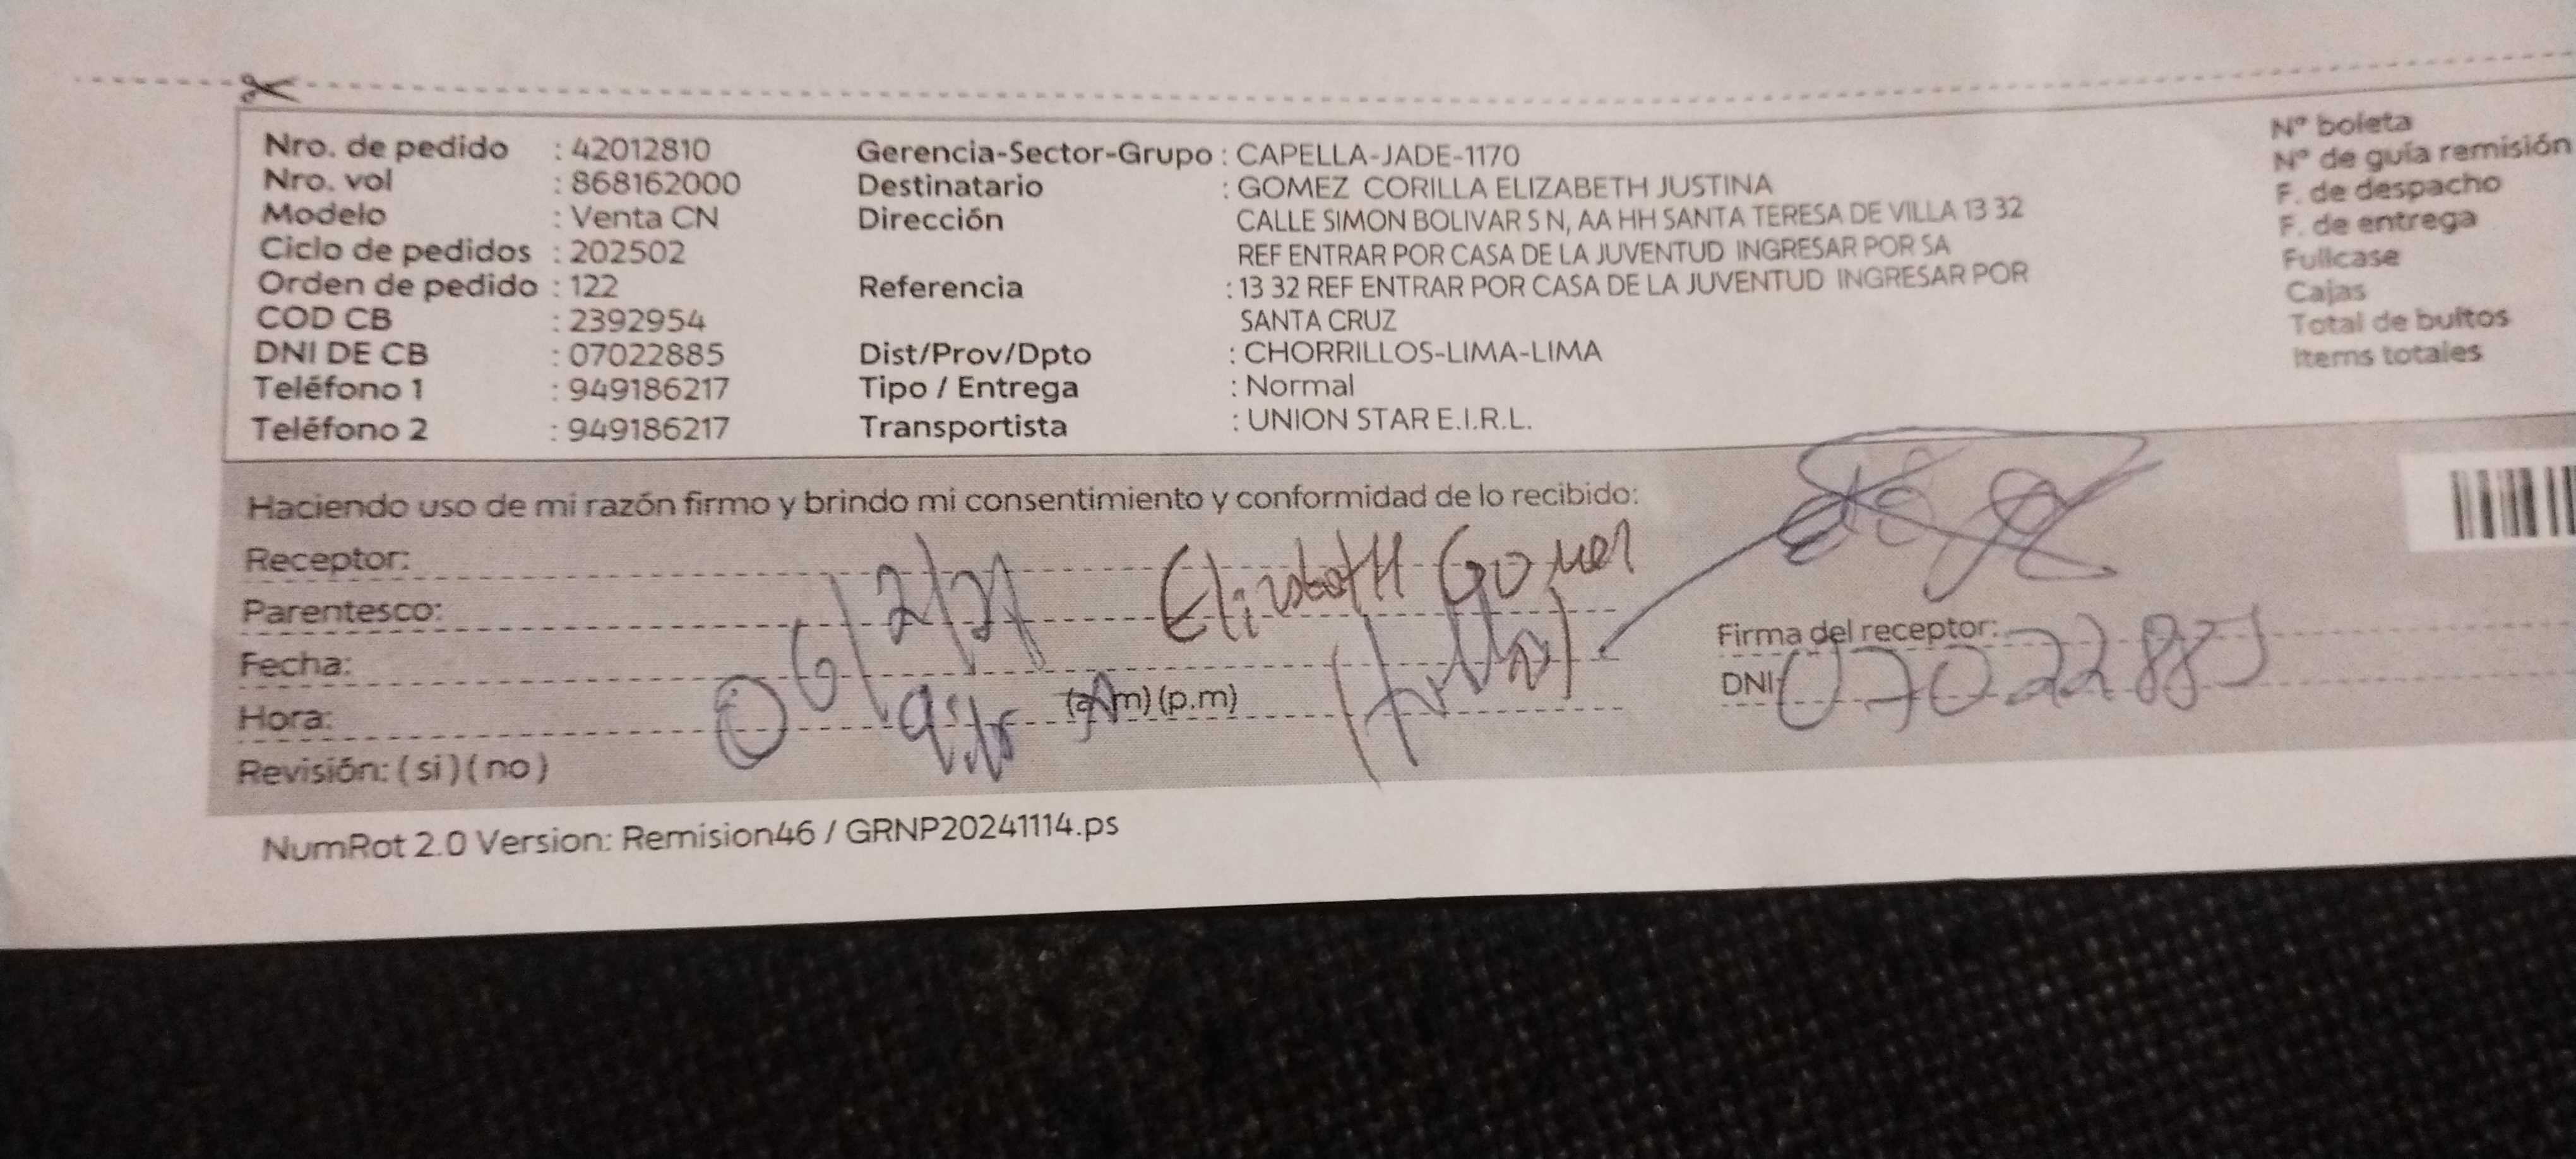 Nro. de pedido : 42012810 Gerencia-Sector-Grupo : CAPELLA-JADE-1170 Nº boleta
Nro. vol : 868162000 Destinatario : GOMEZ CORILLA ELIZABETH JUSTINA Nº de guía remisión
Modelo : Venta CN Dirección CALLE SIMON BOLIVAR S N, AA HH SANTA TERESA DE VILLA 13 32 F. de despacho
Ciclo de pedidos : 202502 REF ENTRAR POR CASA DE LA JUVENTUD INGRESAR POR SA F. de entrega
Orden de pedido : 122 Referencia : 13 32 REF ENTRAR POR CASA DE LA JUVENTUD INGRESAR POR Fullcase
COD CB : 2392954 SANTA CRUZ Cajas
DNI DE CB : 07022885 Dist/Prov/Dpto : CHORRILLOS-LIMA-LIMA Total de bultos
Teléfono 1 : 949186217 Tipo / Entrega : Normal Items totales
Teléfono 2 : 949186217 Transportista : UNION STAR E.I.R.L.
Haciendo uso de mi razón firmo y brindo mi consentimiento y conformidad de lo recibido:
Receptor: Gomez
Parentesco:
Firma del receptor:
Fecha: 06/2/
DNI: 07022885
Hora: (a.m) (p.m)
Revisión: ( si ) ( no )
NumRot 2.0 Version: Remision46 / GRNP20241114.ps